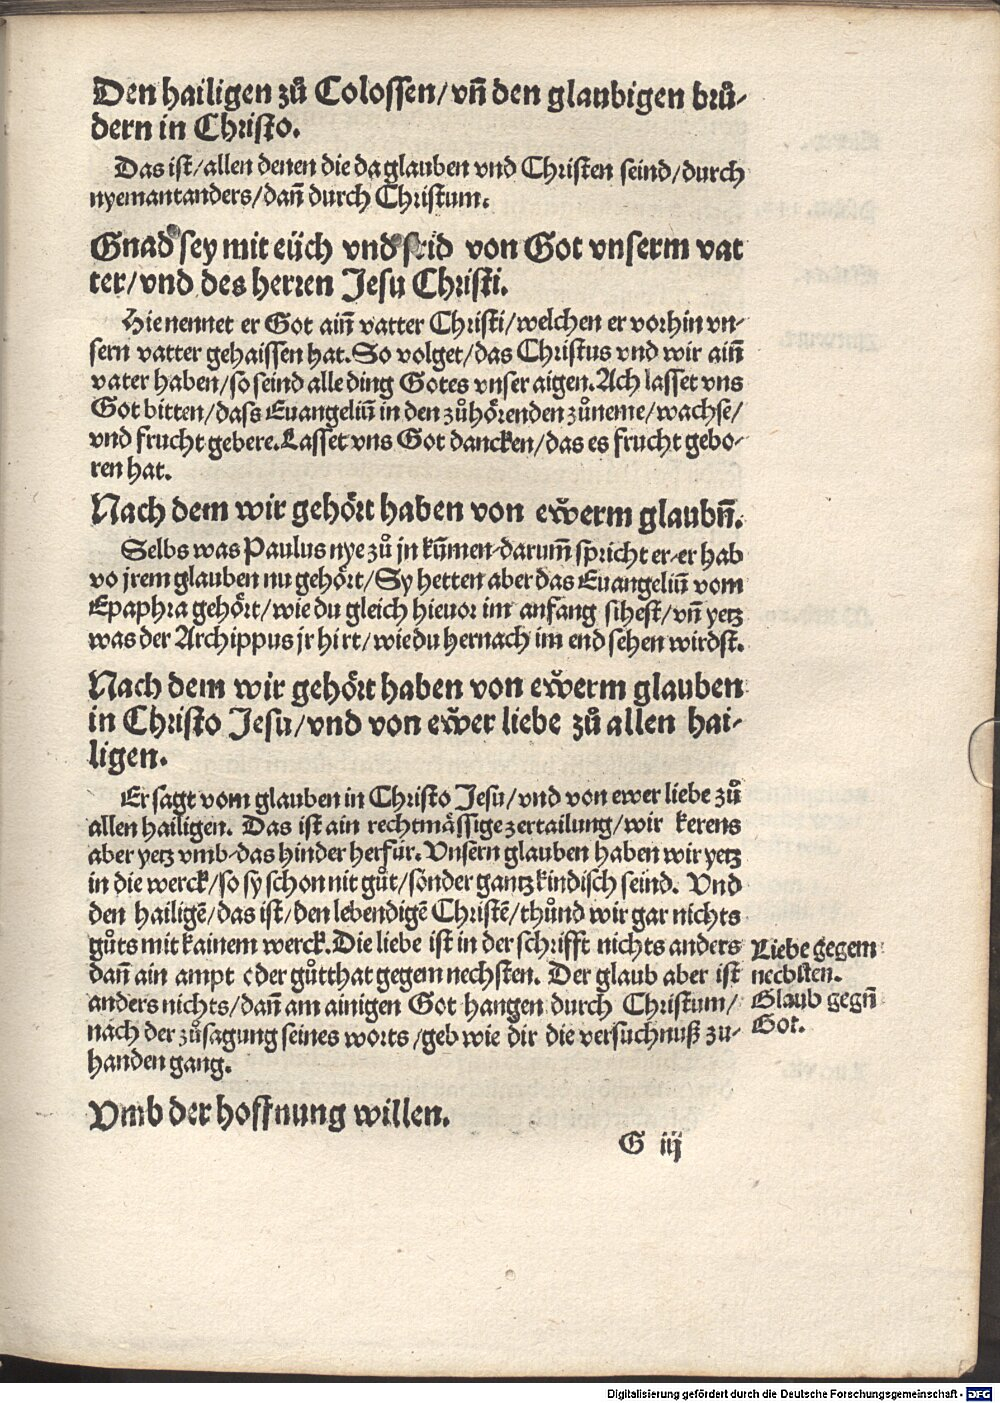 Den hailigen zů Colossen/vñ den glaubigen brů-
dern in Christo.
Das ist/allen denen die da glauben vnd Christen seind/durch
nyemant anders/dañ durch Christum.
Gnad sey mit eüch vnd frid von Got vnserm vat
ter/vnd des herren Jesu Christi.
Hie nennet er Got aiñ vatter Christi/welchen er vorhin vn-
sern vatter gehaissen hat. So volget/das Christus vnd wir aiñ
vater haben/so seind alle ding Gotes vnser aigen. Ach lasset vns
Got bitten/dass Euangeliũ in den zůhörenden zůneme/wachse/
vnd frucht gebere. Lasset vns Got dancken/das es frucht gebo-
ren hat.
Nach dem wir gehört haben von eẅerm glaubñ.
Selbs was Paulus nye zů jn kũmen-darum̃ spricht er-er hab
vo jrem glauben nu gehört/Sy hetten aber das Euangeliũ vom
Epaphra gehört/wie du gleich hieuor im anfang sihest/vñ yetz
was der Archippus jr hirt/wie du hernach im end sehen wirdst.
Nach dem wir gehört haben von eẅerm glauben
in Christo Jesu/vnd von eẅer liebe zů allen hai-
ligen.
Er sagt vom glauben in Christo Jesu/vnd von ewer liebe zů
allen hailigen. Das ist ain rechtmässige zertailung/wir kerens
aber yetz vmb-das hinder herfür. Vnsern glauben haben wir yetz
in die werck/so sy schon nit gůt/sonder gantz kindisch seind. Vnd
den hailigẽ/das ist/den lebendigẽ Christẽ/thůnd wir gar nichts
gůts mit kainem werck. Die liebe ist in der schrifft nichts anders
dañ ain ampt oder gůtthat gegem nechsten. Der glaub aber ist
anders nichts/dañ am ainigen Got hangen durch Christum/
nach der zůsagung seines worts/geb wie dir die versuchnuß zu-
handen gang.
Liebe gegem
nechsten.
Glaub gegñ
Got.
Vmb der hoffnung willen.
G iij
Digitalisierung gefördert durch die Deutsche Forschungsgemeinschaft - DFG